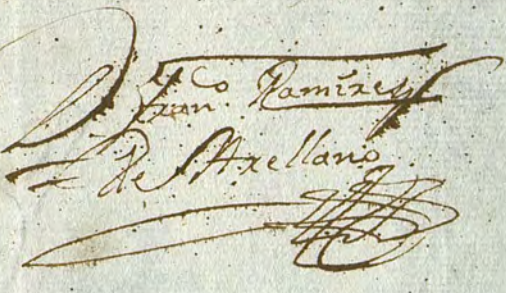 D Fran.co Ramirez
de Arellano